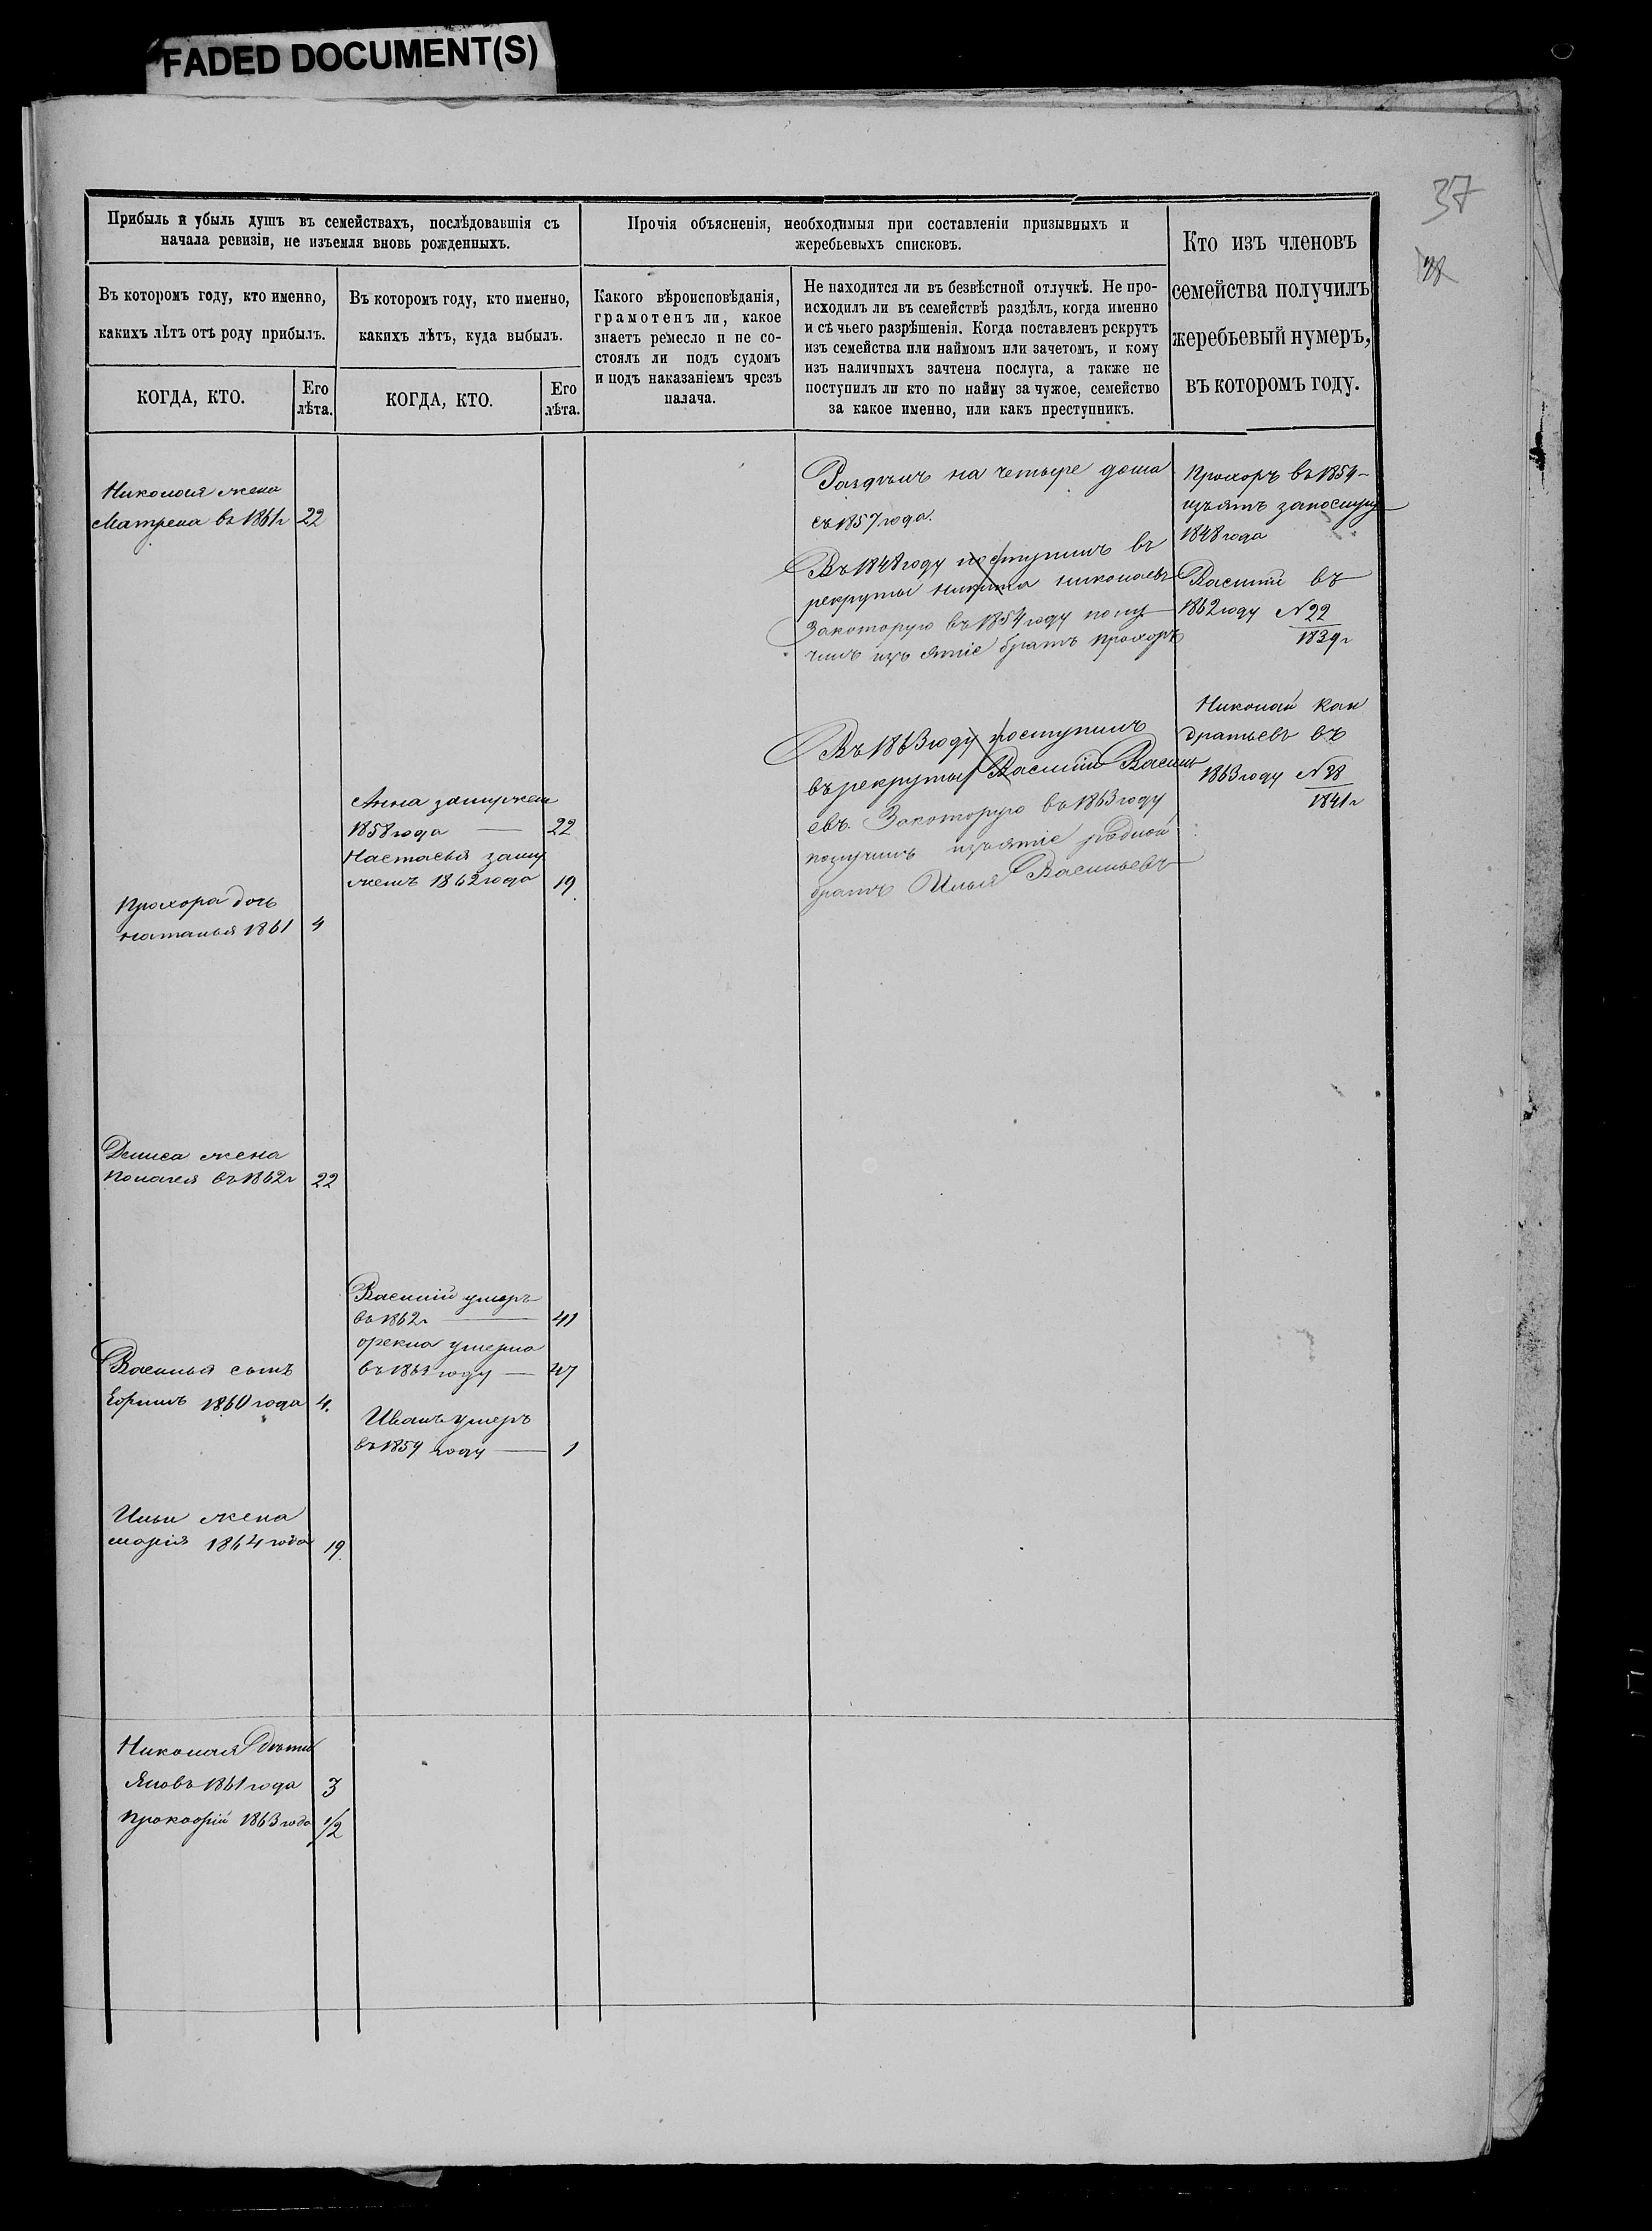 FADED DOCUMENT(S)
37
Прибыль и убыль душъ въ семействахъ, послѣдовавшія съ
начала ревизіи, не изъемля вновь рожденныхъ.
Въ которомъ году, кто именно,
какихъ лѣтъ отъ роду прибылъ.
КОГДА, КТО.
Его
лѣта.
Въ которомъ году, кто именно,
какихъ лѣтъ, куда выбылъ.
КОГДА, КТО.
Его
лѣта.
Прочія объясненія, необходимыя при составленіи призывныхъ и
жеребьевыхъ списковъ.
Какого вѣроисповѣданія,
грамотенъ ли, какое
знаетъ ремесло и не со-
стоялъ ли подъ судомъ
и подъ наказаніемъ чрезъ
палача.
Не находится ли въ безвѣстной отлучкѣ. Не про-
исходилъ ли въ семействѣ раздѣлъ, когда именно
и съ чьего разрѣшенія. Когда поставленъ рекрутъ
изъ семейства или наймомъ или зачетомъ, и кому
изъ наличныхъ зачтена послуга, а также не
поступилъ ли кто по найму за чужое, семейство
за какое именно, или какъ преступникъ.
Кто изъ членовъ
семейства получилъ
жеребьевый нумеръ,
въ которомъ году.
Николая жена
Матрена въ 1861г 22
Прохора дочь
наталья 1861 4
Дениса жена
Полагея въ 1862г 22
Василья сынъ
Ефимъ 1860 года 4.
Ильи жена
марія 1864 года 19.
Николая Дѣти
Яковъ 1861 года 3
Прокофій 1863 года 1/2
Анна замужем
1858 года — 22
Настасья заму
жемъ 1862 года 19.
Василій умеръ
въ 1862г — 41
фекла умерла
въ 1861 году — 47
Иванъ умеръ
въ 1859 году — 1
Раздѣлъ на четыре дома
съ 1857 года.
Въ 1848 году поступилъ въ
рекруты никита николаевъ
Закоторую въ 1854 году полу
чилъ изъ ятіе братъ прохоръ
Въ 1863 году поступилъ
въ рекруты Василій Василь
евъ. Закоторую въ 1863 году
получилъ изъятіе родной
братъ Илья Васильевъ
Прохоръ въ 1854
изъятъ запослугу
1848 года
Василій въ
1862 году №22
1839г
Николай Кан
дратьевъ въ
1863 году №38
1841г